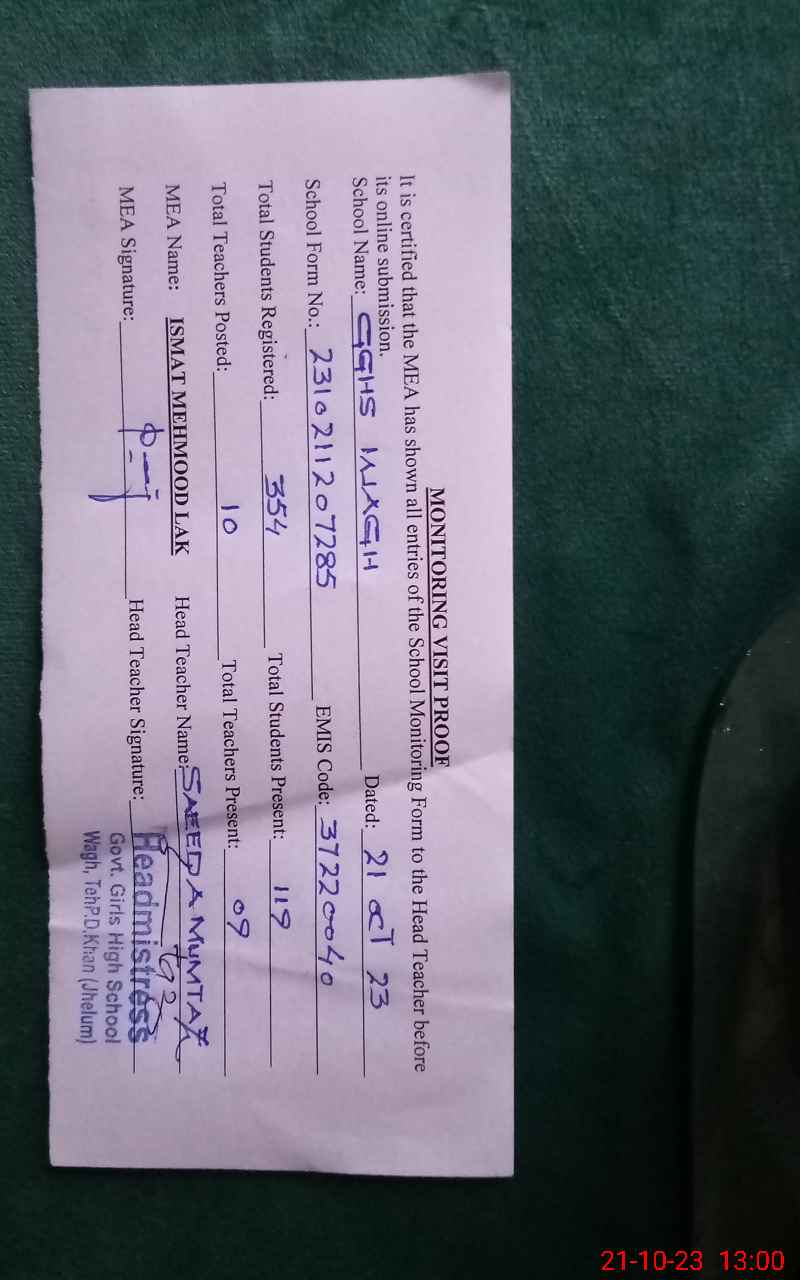 MONITORING VISIT PROOF
It is certified that the MEA has shown all entries of the School Monitoring Form to the Head Teacher before
its online submission.
School Name: GGHS WAGH Dated: 21 OCT 23
School Form No.: 2310211207285 EMIS Code: 37220040
Total Students Registered: 354 Total Students Present: 119
Total Teachers Posted: 10 Total Teachers Present: 09
MEA Name: ISMAT MEHMOOD LAK Head Teacher Name: SAEEDA MUMTAZ
MEA Signature: Head Teacher Signature:
Headmistress
Govt. Girls High School
Wagh, Teh P.D.Khan (Jhelum)
21-10-23 13:00